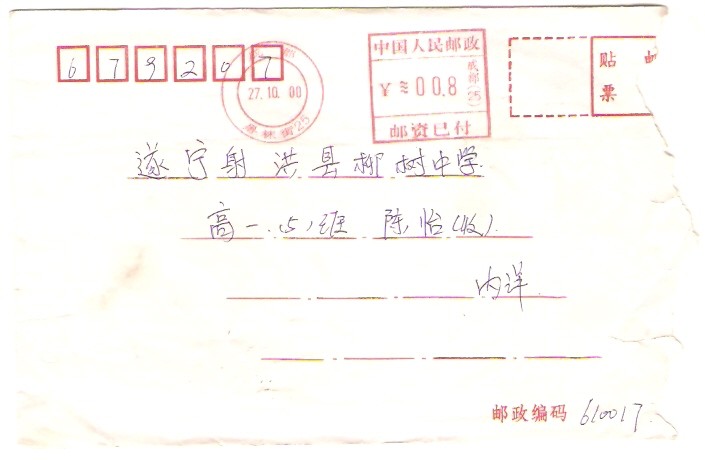 679207
27.10.00
中国人民邮政
¥≈00.8
成都(25)
邮资已付
贴 邮
票
遂宁射洪县柳树中学
高一.(5)班 陈怡(收).
内详
邮政编码 610017